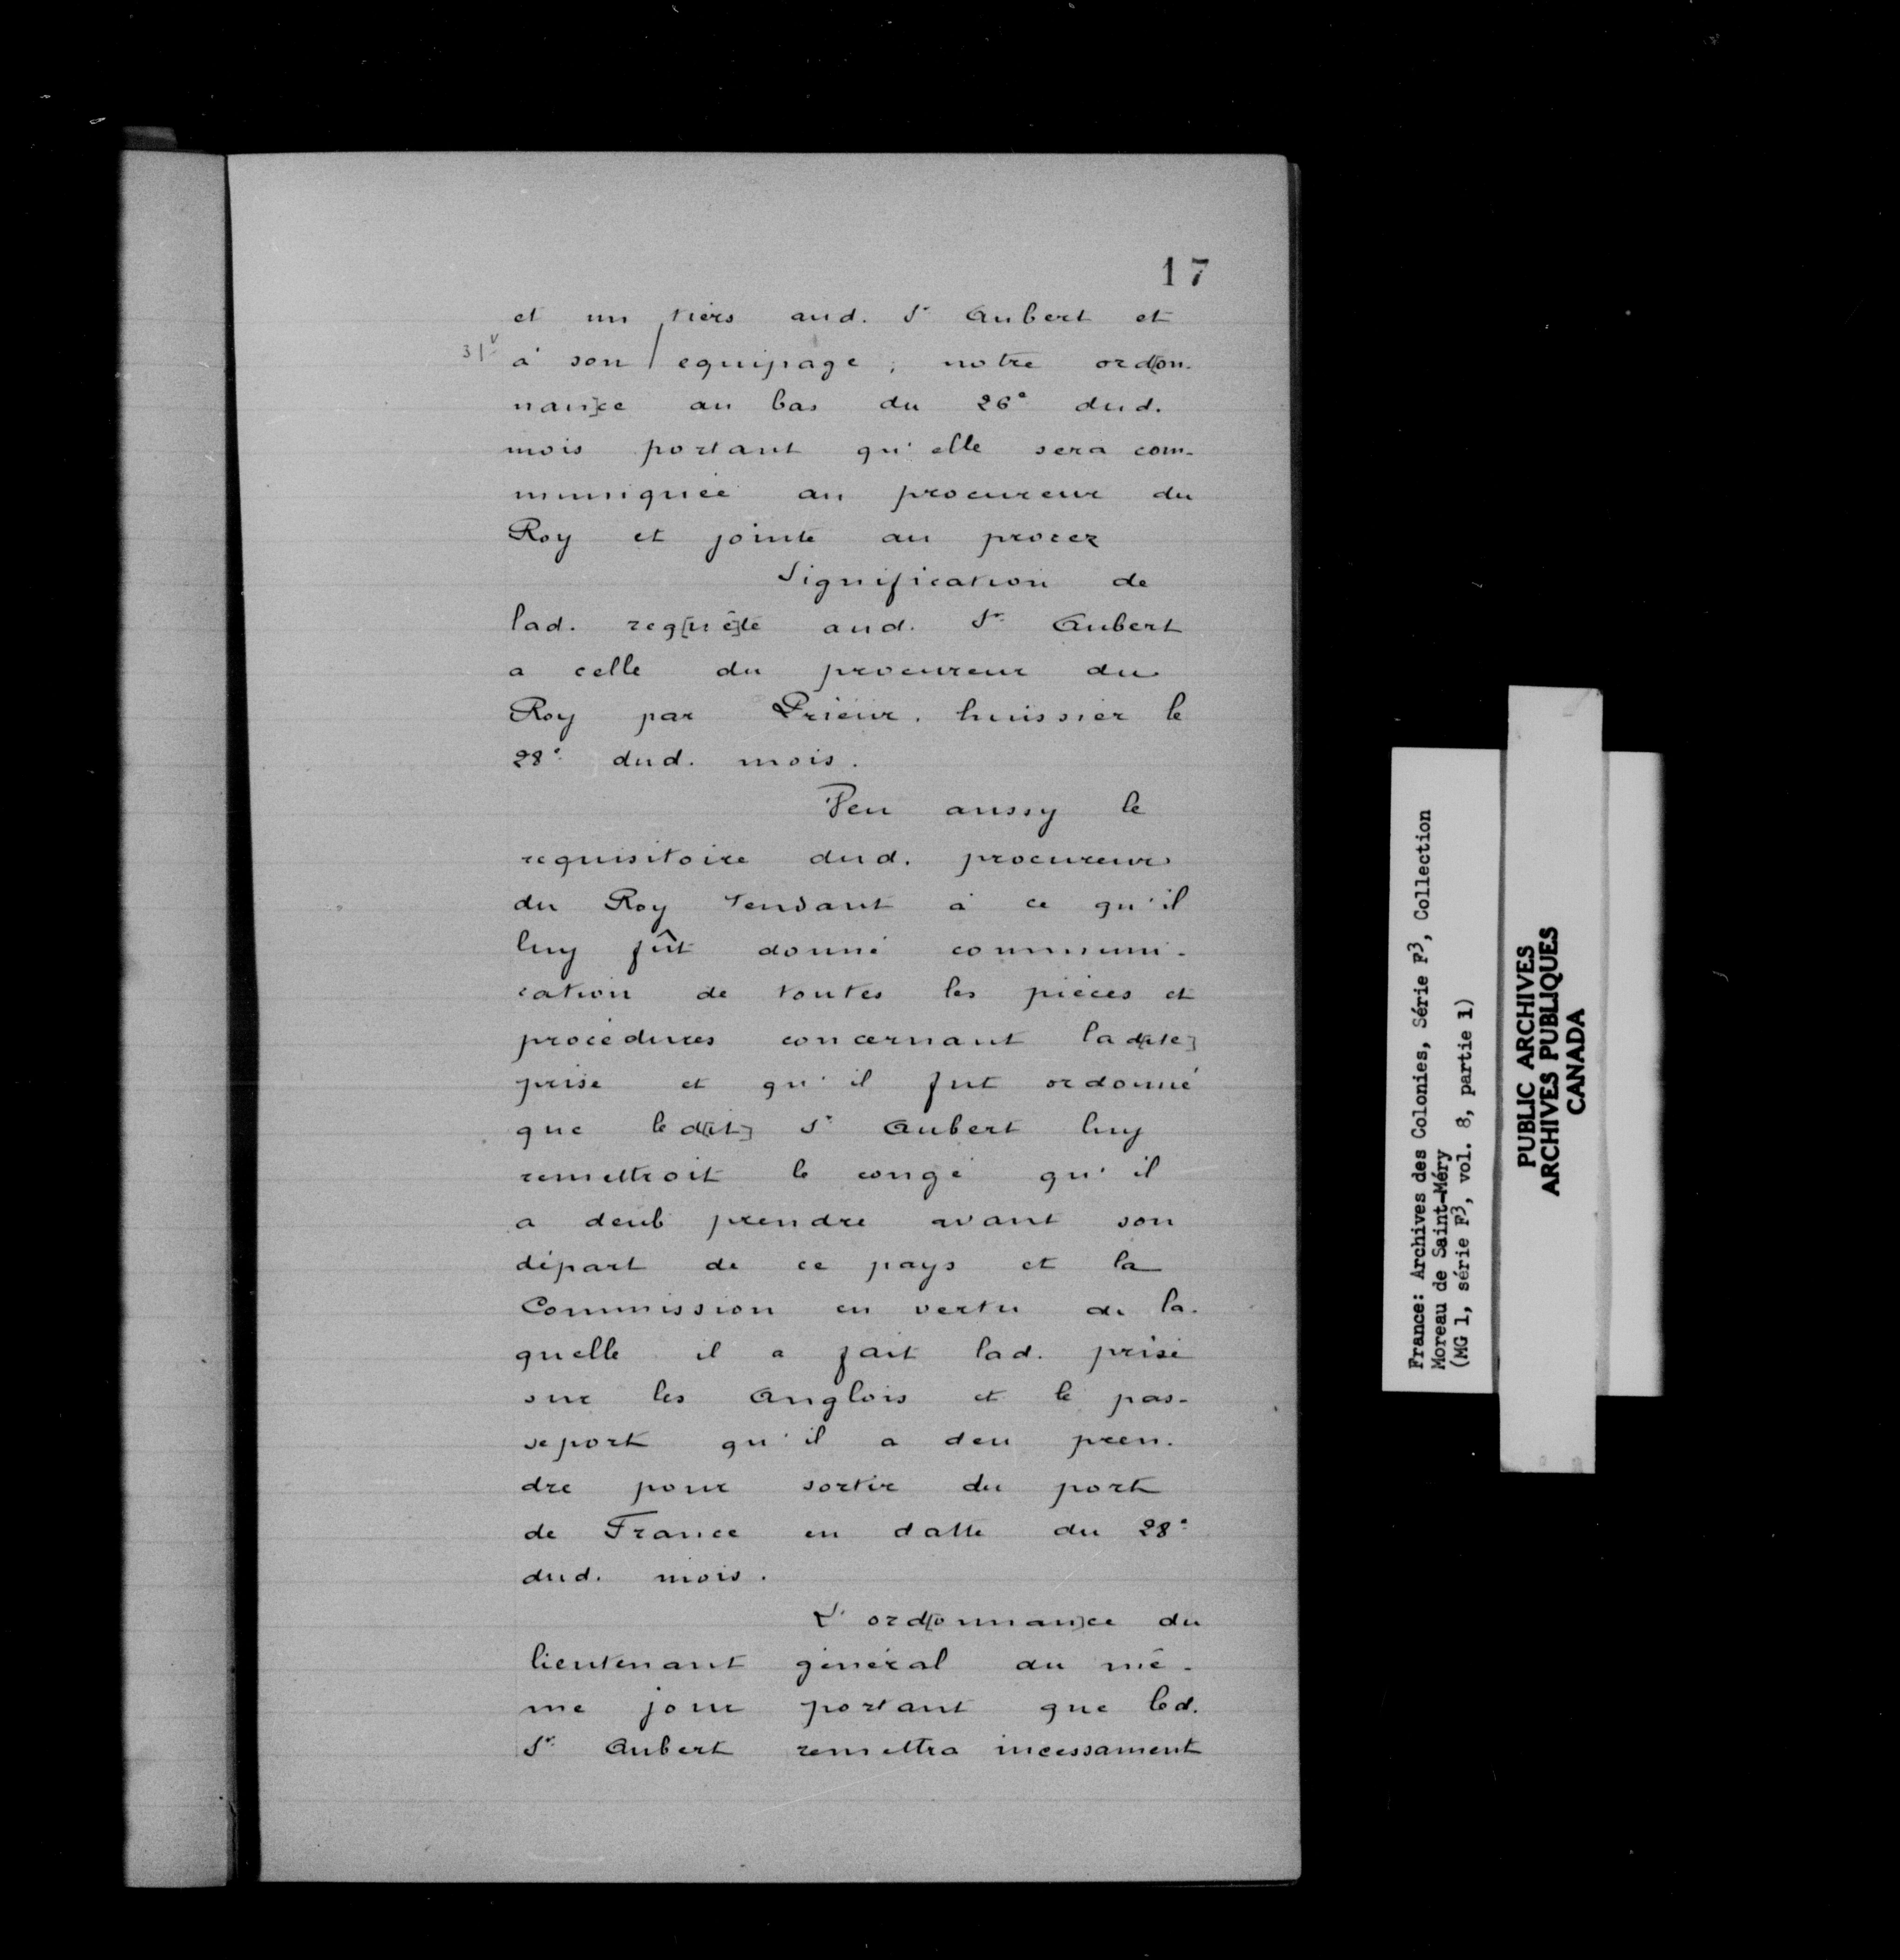 17
et un tiers aud. Sr Aubert et
31v à son / equipage ; notre ord[on-
nan]ce au bas du 26e dud.
mois portant qu'elle sera com-
muniquée au procureur du
Roy et jointe au procez
Signification de
lad. req[uê]te aud. Sr Aubert
a celle du procureur du
Roy par Prieur, huissier le
28e dud. mois.
Veu aussy le
requisitoire dud. procureur
du Roy tendant à ce qu'il
luy fût donné communi-
cation de toutes les pièces et
procédures concernant lad[ite]
prise et qu'il fut ordonné
que led[it] Sr Aubert luy
remettroit le congé qu'il
a deub prendre avant son
départ de ce pays et la
Commission en vertu de la-
quelle il a fait lad. prise
sur les Anglois et le pas-
seport qu'il a deu pren-
dre pour sortir du port
de France en datte du 28e
dud. mois.
L'ord[onnan]ce du
lieutenant général du mê-
me jour portant que led.
Sr Aubert remettra incessament
France: Archives des Colonies, Série F3, Collection
Moreau de Saint-Méry
(MG 1, série F3, vol. 8, partie 1)
PUBLIC ARCHIVES
ARCHIVES PUBLIQUES
CANADA